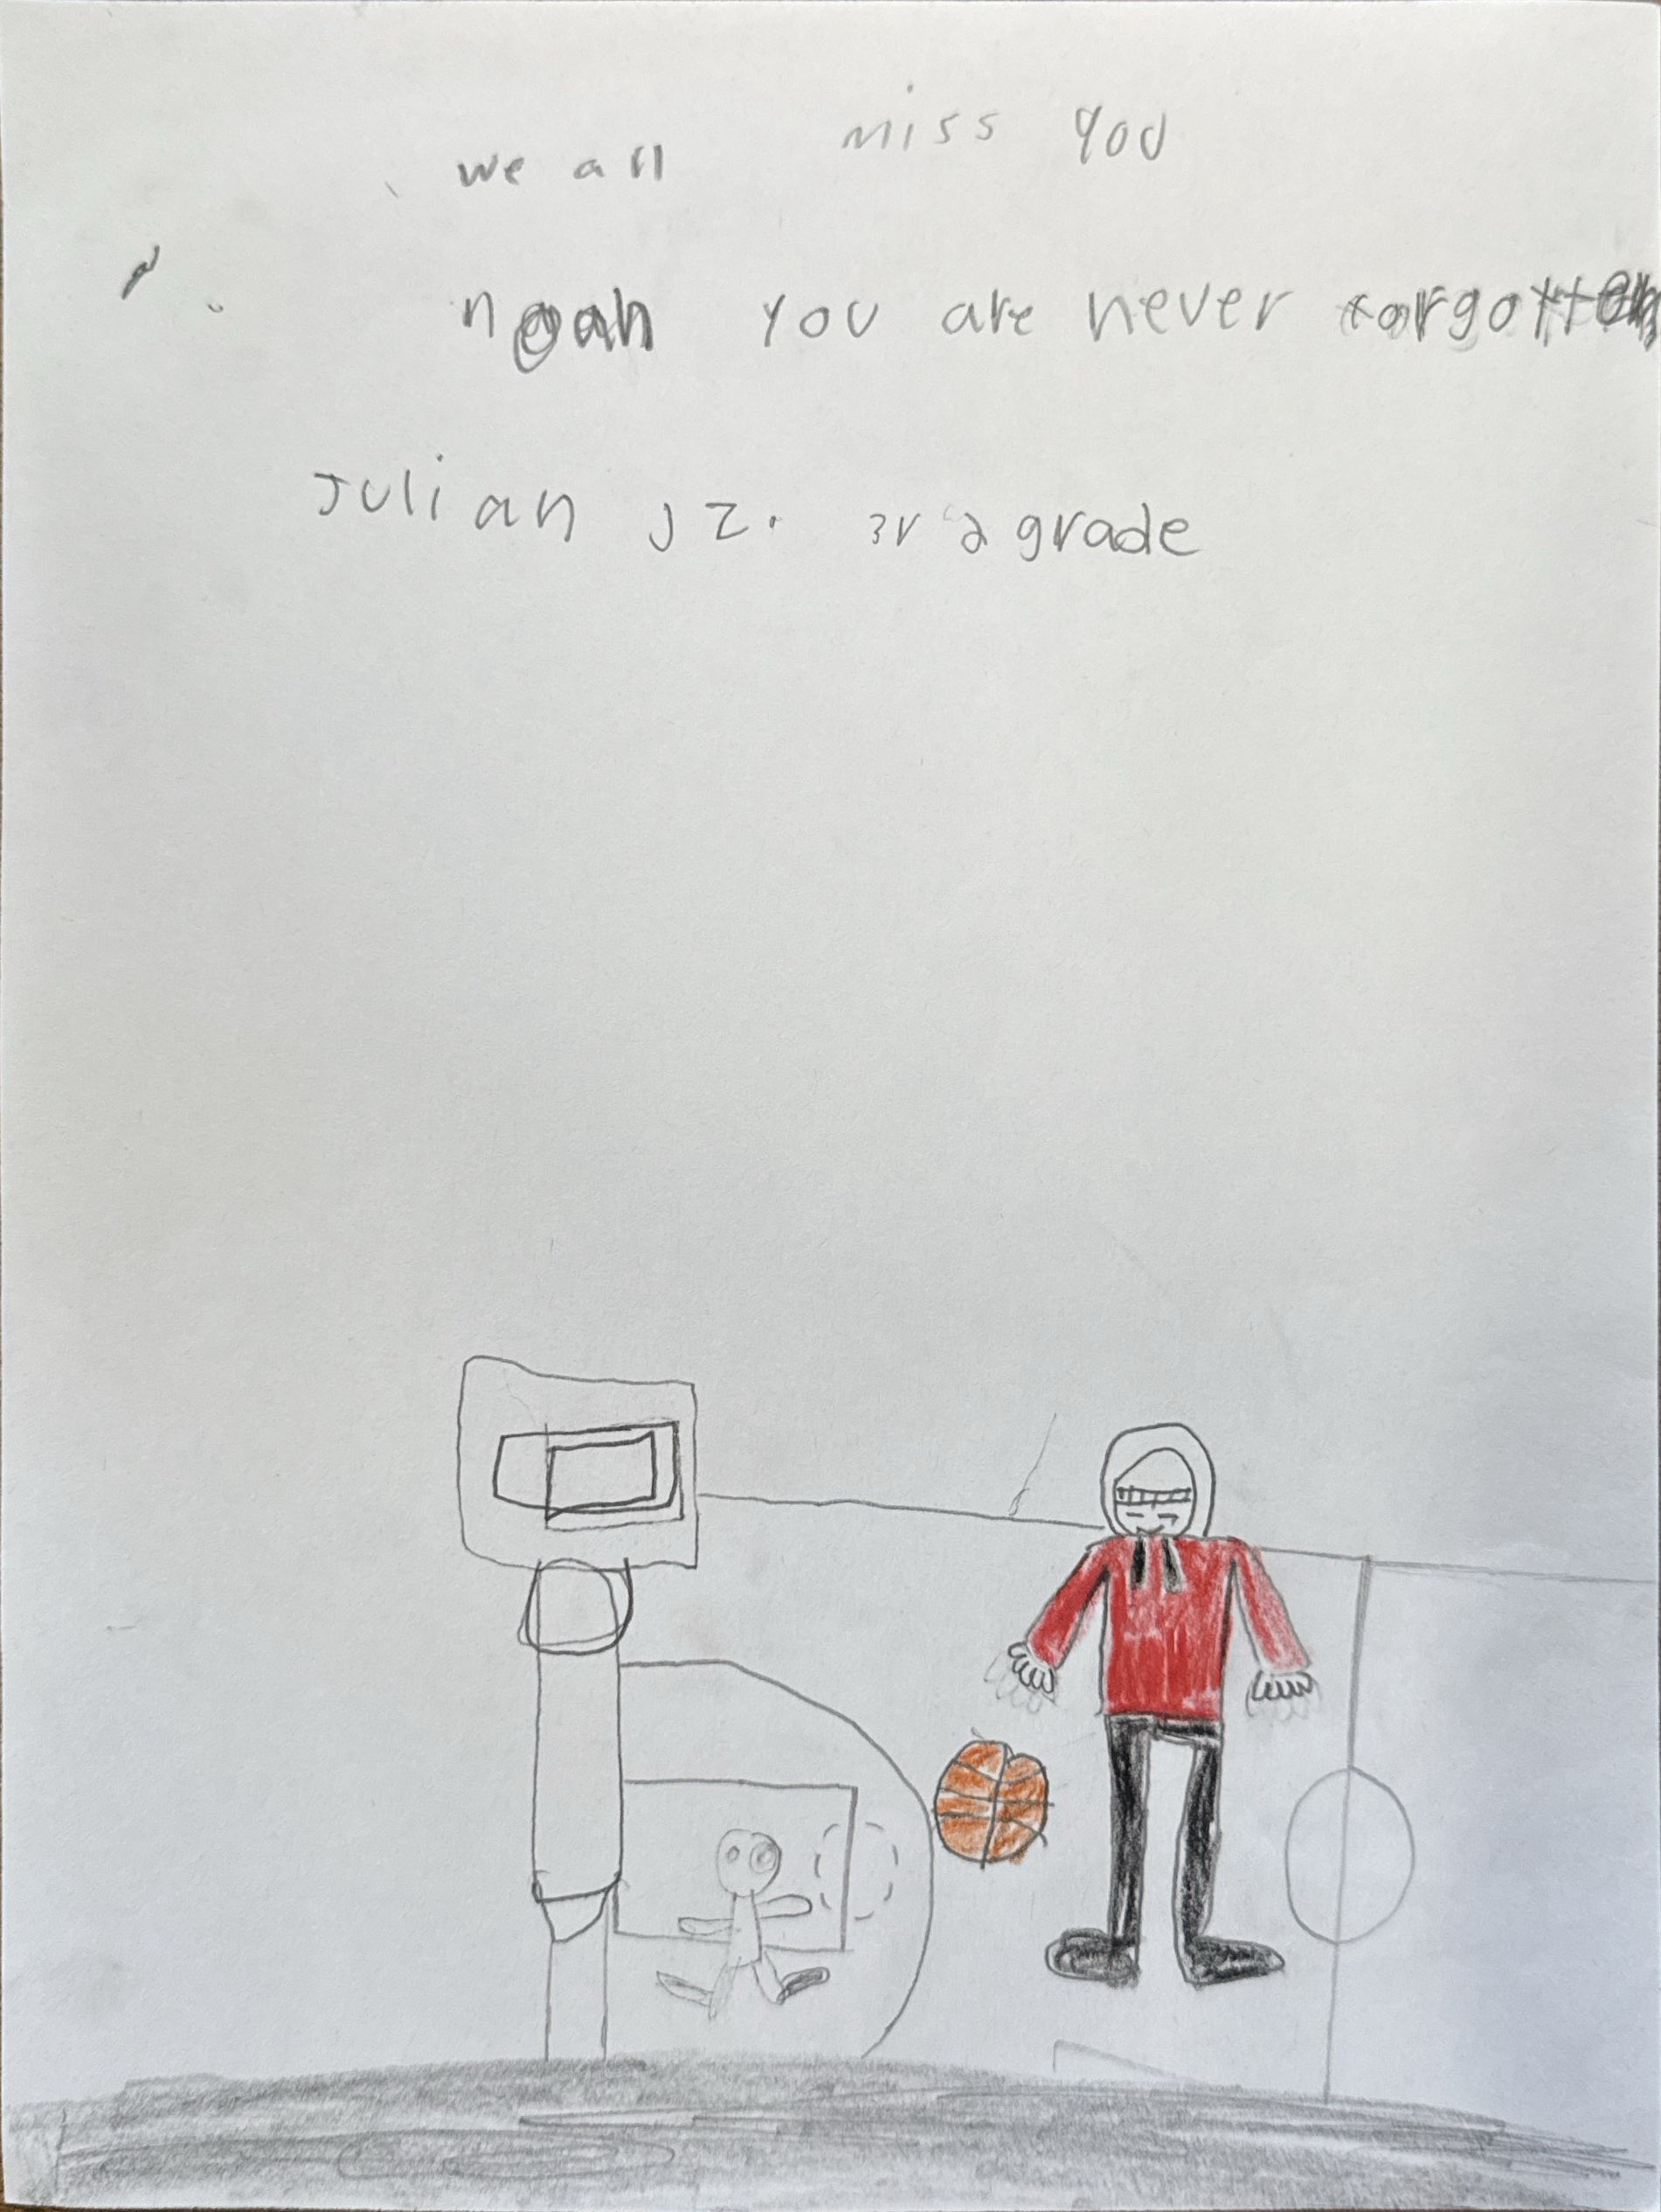 we all miss you
noah you are never forgotten
Julian J Z. 3rd grade